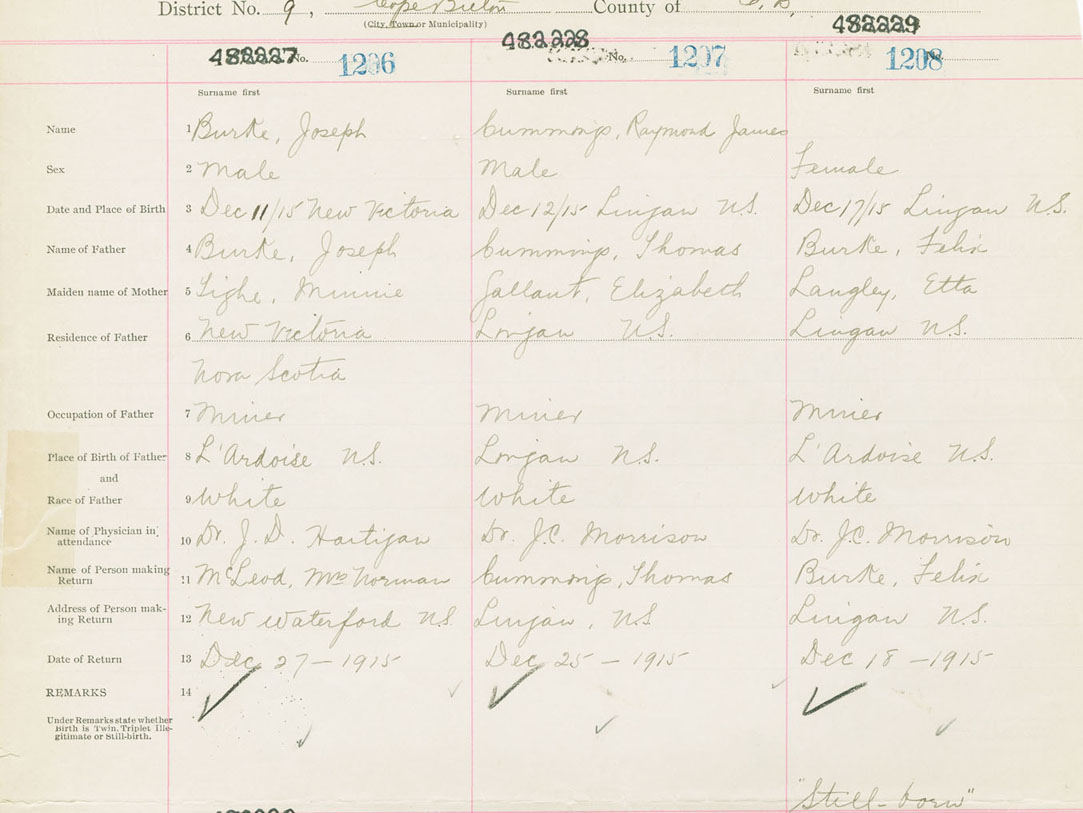 District No. 9, Cape Breton County of C. B.
(City, Town or Municipality)
482227 No. 1206 482228 No. 1207 482229 No. 1208
Surname first Surname first Surname first
Name 1 Burke, Joseph Cummings, Raymond James
Sex 2 Male Male Female
Date and Place of Birth 3 Dec 11/15 New Victoria Dec 12/15 Lingan N.S. Dec 17/15 Lingan N.S.
Name of Father 4 Burke, Joseph Cummings, Thomas Burke, Felix
Maiden name of Mother 5 Tighe, Minnie Gallant, Elizabeth Langley, Etta
Residence of Father 6 New Victoria Lingan N.S. Lingan N.S.
Nova Scotia
Occupation of Father 7 Miner Miner Miner
Place of Birth of Father 8 L'Ardoise N.S. Lingan N.S. L'Ardoise N.S.
and
Race of Father 9 White White White
Name of Physician in
attendance 10 Dr. J. D. Hartigan Dr. J.C. Morrison Dr. J.C. Morrison
Name of Person making
Return 11 McLeod, Mrs Norman Cummings, Thomas Burke, Felix
Address of Person mak-
ing Return 12 New Waterford N.S. Lingan, N.S Lingan N.S.
Date of Return 13 Dec 27 – 1915 Dec 25 – 1915 Dec 18 – 1915
REMARKS 14
Under Remarks state whether
Birth is Twin, Triplet Ille-
gitimate or Still-birth.
"Still-born"